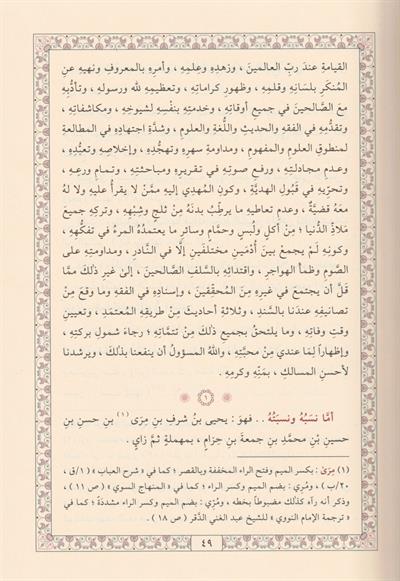 القيامةِ عندَ ربِّ العالمينَ ، وزهدِهِ وعِلمِهِ ، وأمرِهِ بالمعروفِ ونهيهِ عنِ
المُنكَرِ بلسَانِهِ وقلمِهِ ، وظهورِ كراماتِهِ ، وتعظيمِهِ للهِ ورسولِهِ ، وتأدُّبِهِ
معَ الصَّالحينَ في جميعِ أوقاتِهِ ، وخدمتِهِ بنفْسِهِ لشيوخِهِ ، ومكاشفاتِهِ ،
وتقدُّمِهِ في الفقهِ والحديثِ واللُّغةِ والعلومِ ، وشدَّةِ اجتهادِهِ في المطالعةِ
لمنطوقِ العلومِ والمفهومِ ، ومداومةِ سهرِهِ وتهجُّدِهِ ، وإخلاصِهِ وتعبُّدِهِ ،
وعدمِ مجادلتِهِ ، ورفعِ صوتِهِ في تقريرِهِ ومباحثتِهِ ، وتمامِ ورعِهِ ،
وتحرِّيهِ في قَبُولِ الهديَّةِ ، وكونِ المُهدِي إليهِ ممَّنْ لا يقرأُ عليهِ ولا لهُ
معَهُ قضيَّةٌ ، وعدمِ تعاطيهِ ما يرطِّبُ بدنَهُ مِنْ ثلجٍ وشِبْهِهِ ، وتركِهِ جميعَ
مَلاذِّ الدُّنيا ؛ مِنْ أكلٍ ولُبسٍ وحمَّامٍ وسائرِ ما يعتمدُهُ المرءُ في تفكُّهِهِ ،
وكونِهِ لمْ يجمعْ بينَ أُدْمَينِ مختلفَينِ إلَّا في النَّادرِ ، ومداومتِهِ على
الصَّومِ وظمأِ الهواجرِ ، واقتدائِهِ بالسَّلفِ الصَّالحينَ ، إلىٰ غيرِ ذلكَ ممَّا
قلَّ أن يجتمعَ في غيرِهِ مِنَ المُحقِّقينَ ، وإسنادِهِ في الفقهِ وما وقعَ مِنْ
تصانيفِهِ عندَنا بالسَّندِ ، وثلاثةِ أحاديثَ مِنْ طريقِهِ المُعتمَدِ ، وتعيينِ
وقتِ وفاتِهِ ، وما يلتحقُ بجميعِ ذلكَ مِنْ تتمَّاتِهِ ؛ رجاءَ شمولِ بركتِهِ ،
وإظهاراً لِمَا عندي مِنْ محبَّتِهِ ، واللهُ المسؤولُ أن ينفعَنا بذلكَ ، ويرشدَنا
لأحسنِ المسالكِ ، بمَنِّهِ وكرمِهِ .
١
أمَّا نسَبُهُ ونسبَتُهُ . . فهوَ : يحيى بنُ شرفِ بنِ مِرَى (١) بنِ حسنِ بنِ
حسينِ بْنِ محمَّدِ بنِ جمعةَ بنِ حِزَامٍ ، بمهملةٍ ثمَّ زايٍ .
(١) مِرَىٰ : بكسر الميم وفتح الراء المخففة وبالقصر ؛ كما في « شرح العباب » ( ١/ق
٢٠/ب ) ، ومُرِّي : بضم الميم وكسر الراء ؛ كما في « المنهاج السوي » ( ص ١١ ) ،
وذكر أنه رآه كذلك مضبوطاً بخطه ، ومُرِّي : بضم الميم وكسر الراء مشددَةً ؛ كما في
« ترجمة الإمام النووي » للشيخ عبد الغني الدَّقر ( ص ١٨ ) .
٤٩